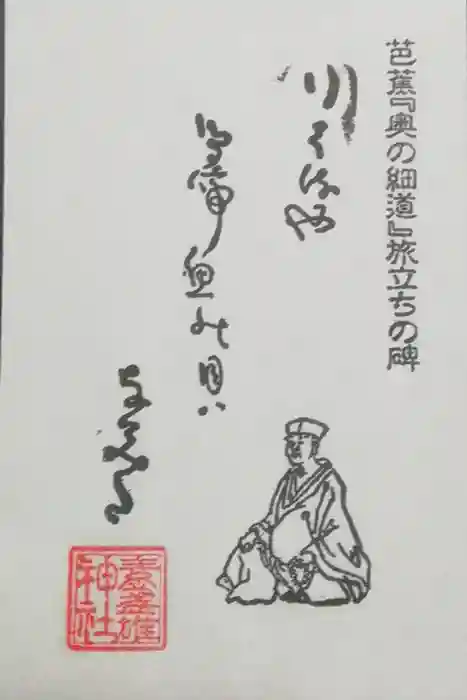 芭蕉『奥の細道』旅立ちの碑
行はるや
鳥啼魚の目ハ
素盞雄神社